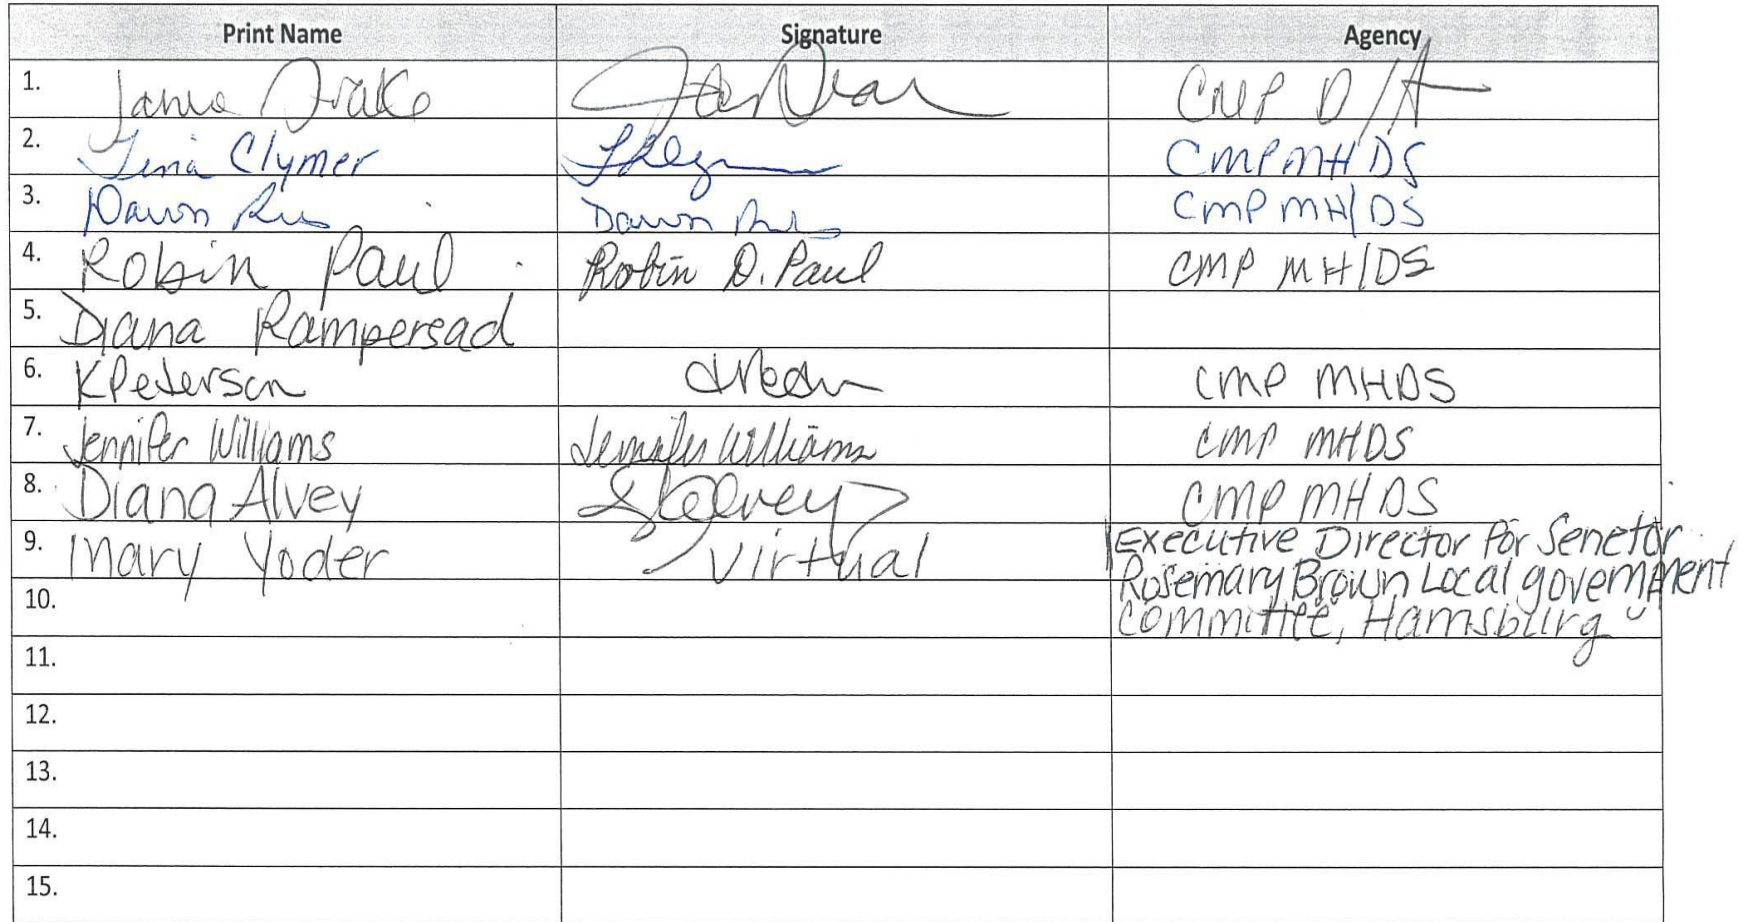 Print Name Signature Agency
1. Jamie Drake CMP D/A
2. Tina Clymer CMPMHDS
3. Dawn Dawn CMP MH/DS
4. Robin Paul Robin D. Paul CMP MH/DS
5. Diana Rampersad
6. KPederson CMP MHDS
7. Jennifer Williams Jennifer Williams CMP MHDS
8. Diana Alvey CMP MHDS
9. Mary Yoder Virtual Executive Director for Senetor
Rosemary Brown Local government
10. Committee, Harrisburg
11.
12.
13.
14.
15.